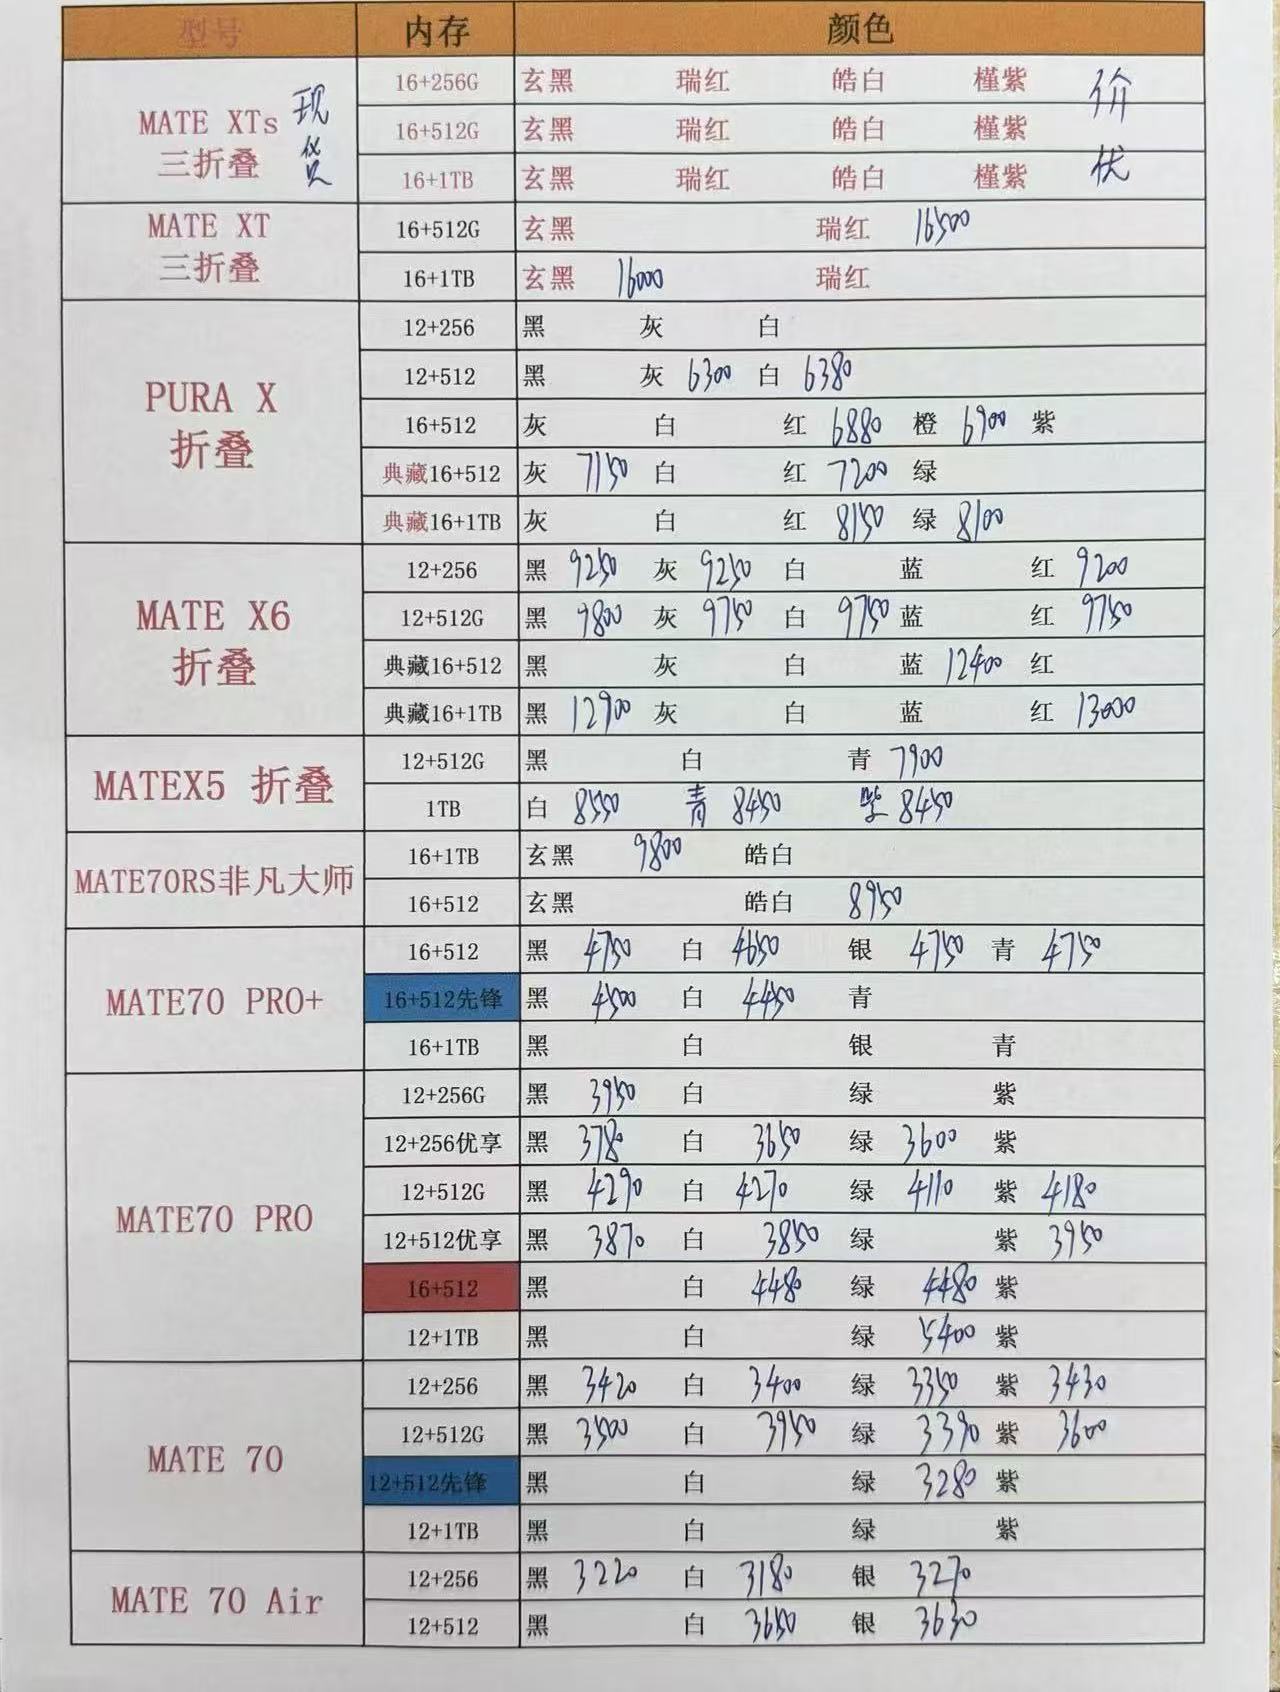 型号 内存 颜色
MATE XTs 三折叠 现货
16+256G 玄黑 瑞红 皓白 槿紫 价
16+512G 玄黑 瑞红 皓白 槿紫
16+1TB 玄黑 瑞红 皓白 槿紫 优
MATE XT 三折叠
16+512G 玄黑 瑞红 16500
16+1TB 玄黑 16000 瑞红
PURA X 折叠
12+256 黑 灰 白
12+512 黑 灰 6300 白 6380
16+512 灰 白 红 6880 橙 6900 紫
典藏16+512 灰 7150 白 红 7200 绿
典藏16+1TB 灰 白 红 8150 绿 8100
MATE X6 折叠
12+256 黑 9250 灰 9250 白 蓝 红 9200
12+512G 黑 9800 灰 9750 白 9750 蓝 红 9750
典藏16+512 黑 灰 白 蓝 12400 红
典藏16+1TB 黑 12900 灰 白 蓝 红 13000
MATEX5 折叠
12+512G 黑 白 青 7900
1TB 白 8550 青 8450 紫 8450
MATE70RS非凡大师
16+1TB 玄黑 9800 皓白
16+512 玄黑 皓白 8950
MATE70 PRO+
16+512 黑 4750 白 4650 银 4750 青 4750
16+512先锋 黑 4500 白 4450 青
16+1TB 黑 白 银 青
MATE70 PRO
12+256G 黑 3950 白 绿 紫
12+256优享 黑 3780 白 3650 绿 3600 紫
12+512G 黑 4290 白 4270 绿 4110 紫 4180
12+512优享 黑 3870 白 3850 绿 紫 3950
16+512 黑 白 4480 绿 4480 紫
12+1TB 黑 白 绿 5400 紫
MATE 70
12+256 黑 3420 白 3400 绿 3350 紫 3430
12+512G 黑 3500 白 3950 绿 3390 紫 3600
12+512先锋 黑 白 绿 3280 紫
12+1TB 黑 白 绿 紫
MATE 70 Air
12+256 黑 3220 白 3180 银 3270
12+512 黑 白 3650 银 3630